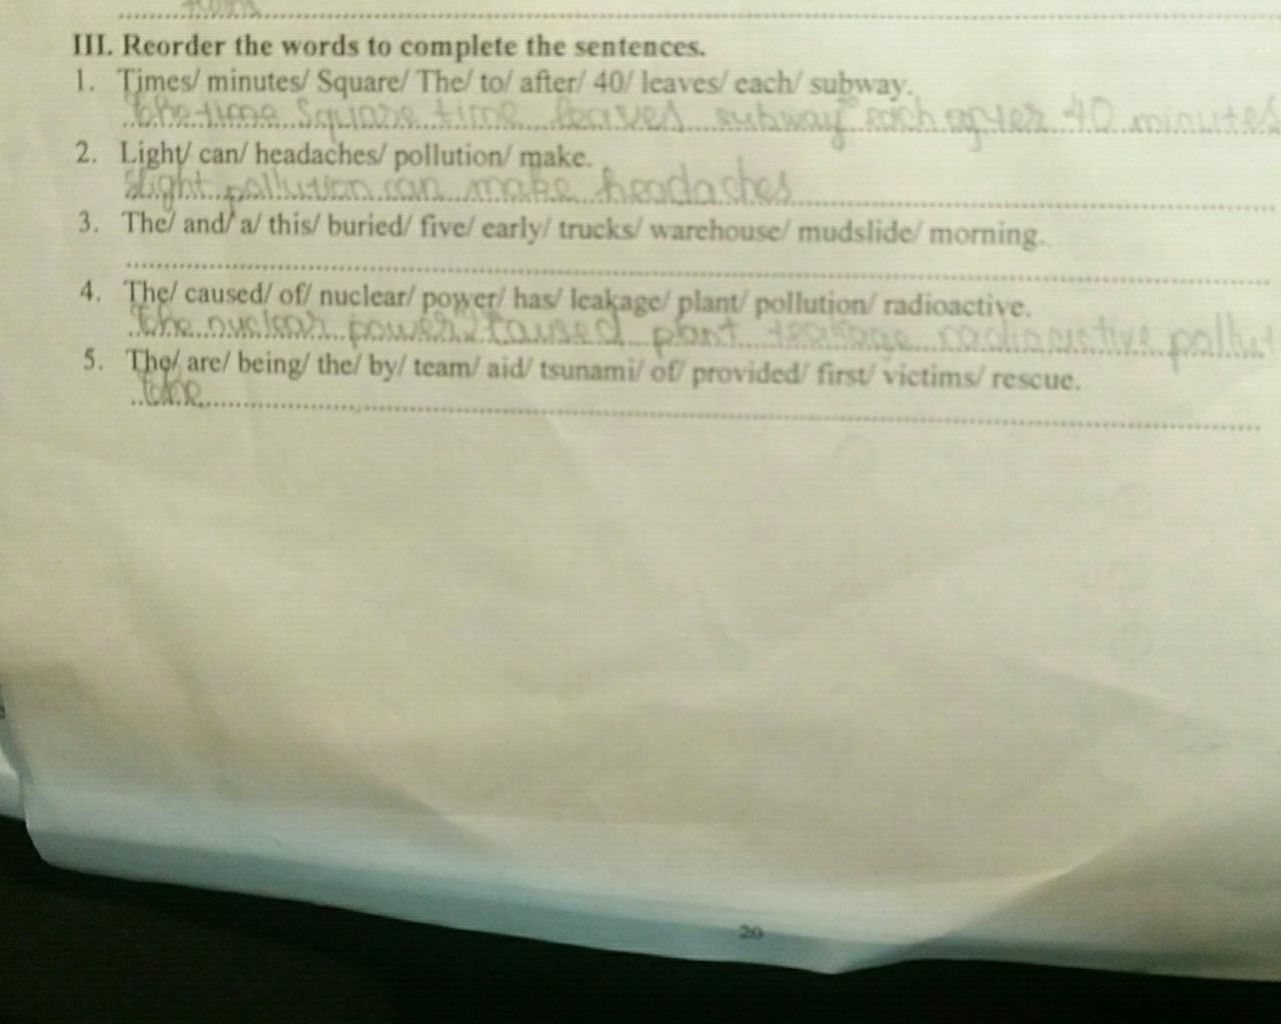 III. Reorder the words to complete the sentences.
1. Times/ minutes/ Square/ The/ to/ after/ 40/ leaves/ each/ subway.
the time Square time leaves subway each after 40 minutes
2. Light/ can/ headaches/ pollution/ make.
Light pollution can make headaches
3. The/ and/ a/ this/ buried/ five/ early/ trucks/ warehouse/ mudslide/ morning.
4. The/ caused/ of/ nuclear/ power/ has/ leakage/ plant/ pollution/ radioactive.
The nuclear power caused plant leakage radioactive pollut
5. The/ are/ being/ the/ by/ team/ aid/ tsunami/ of/ provided/ first/ victims/ rescue.
20